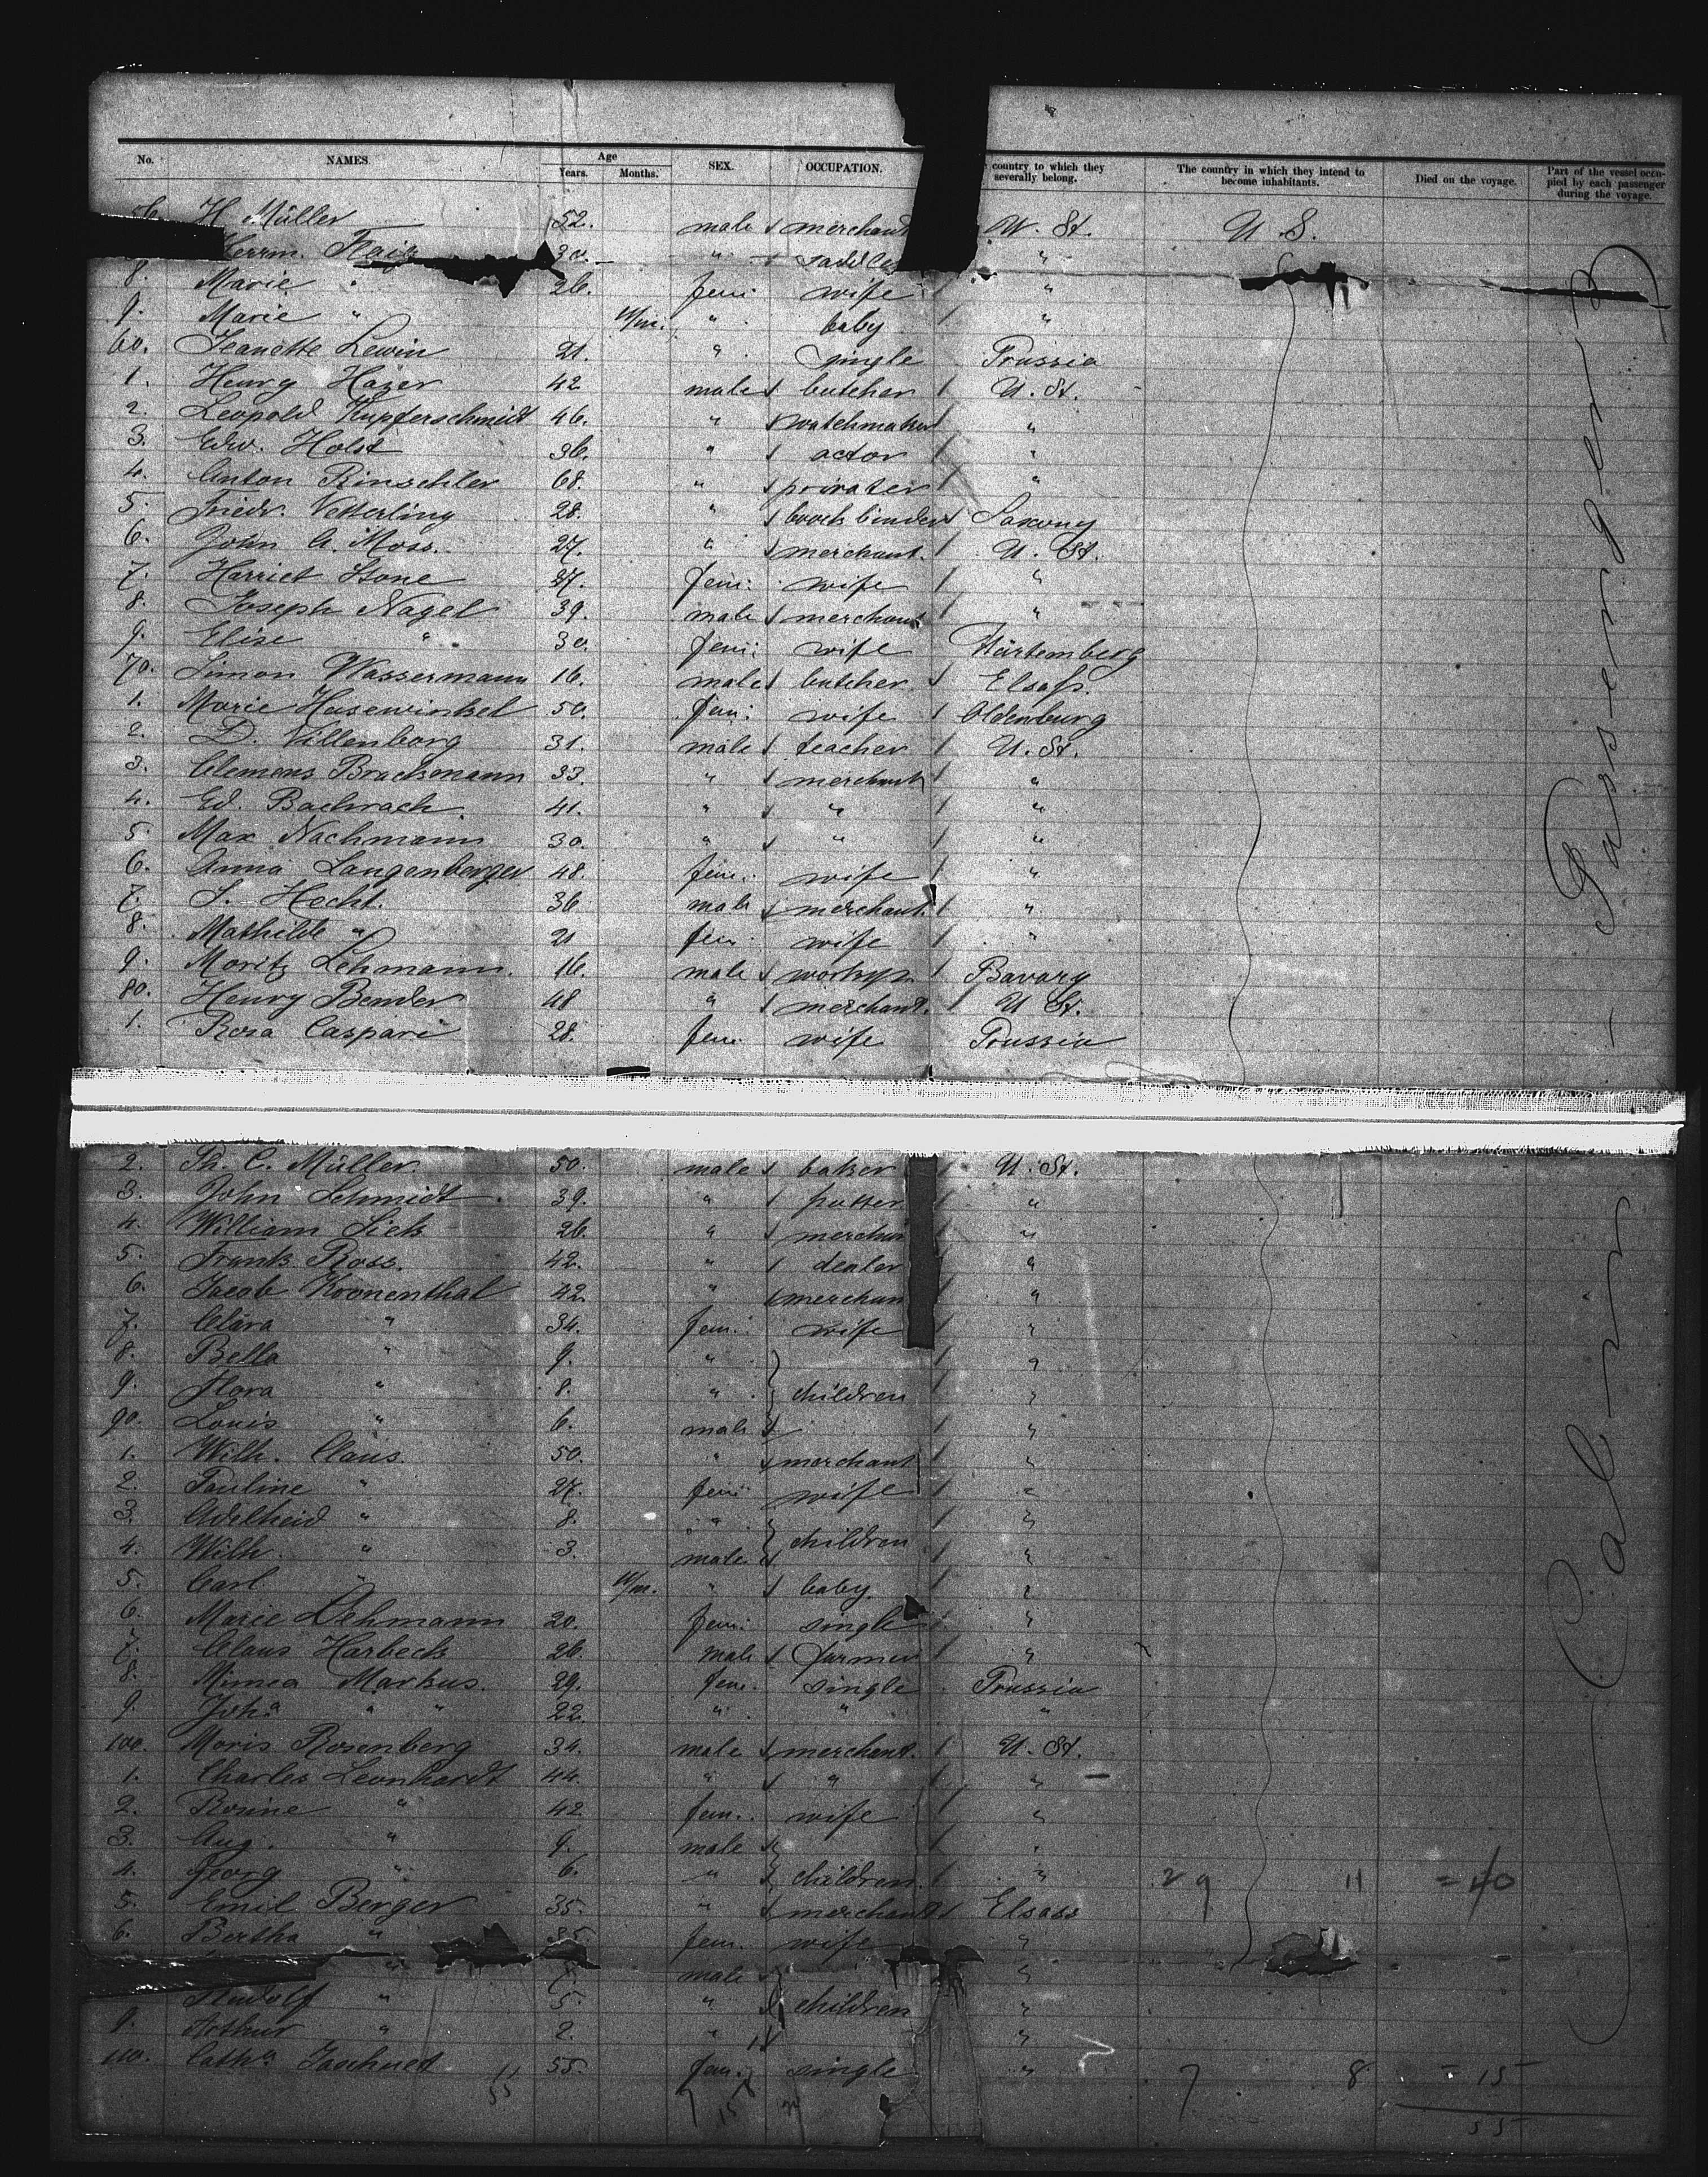 No. NAMES. Age Years. Months. SEX. OCCUPATION. country to which they severally belong. The country in which they intend to become inhabitants. Died on the voyage. Part of the vessel occupied by each passenger during the voyage.
H. Müller 52. male merchant U. St. U. S.
Herrm. 30. " saddler "
8. Marie " 26. fem. wife "
9. Marie " 11/m. " baby "
60. Jeanette Lewin 21. " single Prussia
1. Henry Hazer 42 male butcher U. St.
2. Leopold Kupferschmidt 46. " watchmaker "
3. Edw. Holst 36. " actor "
4. Anton Rinschler 68. " privatier "
5. Friedr. Vetterling 28. " bookbinder Saxony
6. John A. Moss. 27. " merchant. U. St.
7. Harriet Stone 27. fem: wife "
8. Joseph Nagel 39. male merchant "
9. Elise " 30. fem: wife Würtemberg
70. Simon Wassermann 16. male butcher. Elsaß.
1. Marie Hasewinkel 50. fem: wife Oldenburg
2. D. Villenborg 31. male teacher U. St.
3. Clemens Brackmann 33. " merchant "
4. Ed. Bachrach. 41. " " "
5. Max Nachmann 30. " " "
6. Anna Langenberger 48. fem. wife "
7. S. Hecht. 36 male merchant. "
8. Mathilde " 21 fem. wife "
9. Moritz Lehmann. 16. male Bavary
80. Henry Bender 48 " merchant. U. St.
1. Rosa Caspari 28. fem. wife Prussia
2. Ph. C. Müller 50. male baker U. St.
3. John Schmidt. 39. " "
4. William Siek 26. " merchan "
5. Frank Ross. 42. " dealer "
6. Jacob Kronenthal 42. " merchan "
7. Clara " 34. fem. wife "
8. Bella " 9. " "
9. Flora " 8. " children "
90. Louis " 6. male "
1. Wilh. Claus. 50. " merchant "
2. Pauline " 27. fem. wife "
3. Adelheid " 8. " children "
4. Wilh. " 3. male "
5. Carl " 10/m. " baby. "
6. Marie Lehmann 20. fem: single "
7. Claus Harbeck 26. male farmer "
8. Minna Markus. 29. fem. single Prussia
9. Joha " " 22. " " "
100. Moris Rosenberg 34. male merchant. U. St.
1. Charles Leonhardt 44. " " "
2. Rosine " 42 fem. wife "
3. Aug. " 9. male "
4. Georg " 6. " children. " 29 11 = 40
5. Emil Berger 35. " merchant Elsass
6. Bertha " 35. fem. wife "
" male "
Rudolf " 5. " children "
9. Arthur " 2. " "
110. Catha 55. fem. single " 7 8 = 15
11
55
7 15
55
Cabin - Passengers -